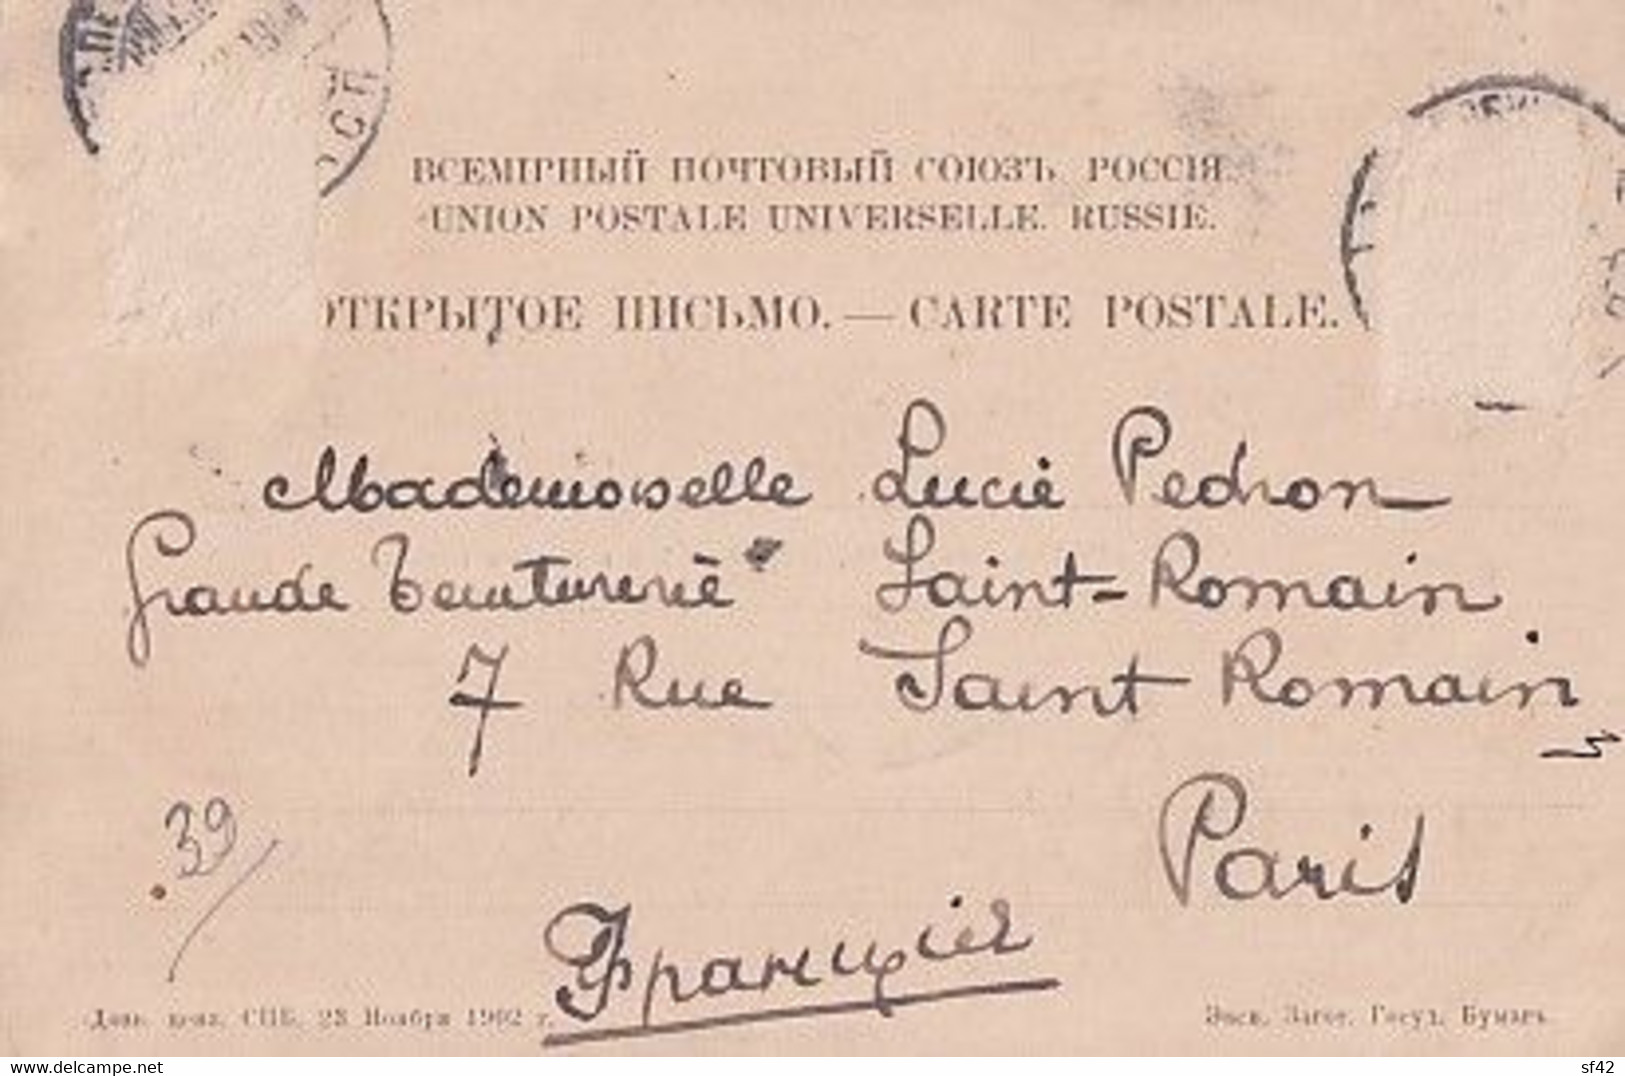 ВСЕМІРНЫЙ ПОЧТОВЫЙ СОЮЗЪ. РОССІЯ.
UNION POSTALE UNIVERSELLE. RUSSIE.
ОТКРЫТОЕ ПИСЬМО. — CARTE POSTALE.
Mademoiselle Lucie Pedron
Grande Teinturerie Saint-Romain
7 Rue Saint Romain
Paris
39
Франція
Дозв. ценз. СПБ. 23 Ноября 1902 г.
Эксп. Загот. Госуд. Бумагъ
delcampe.net
sf42